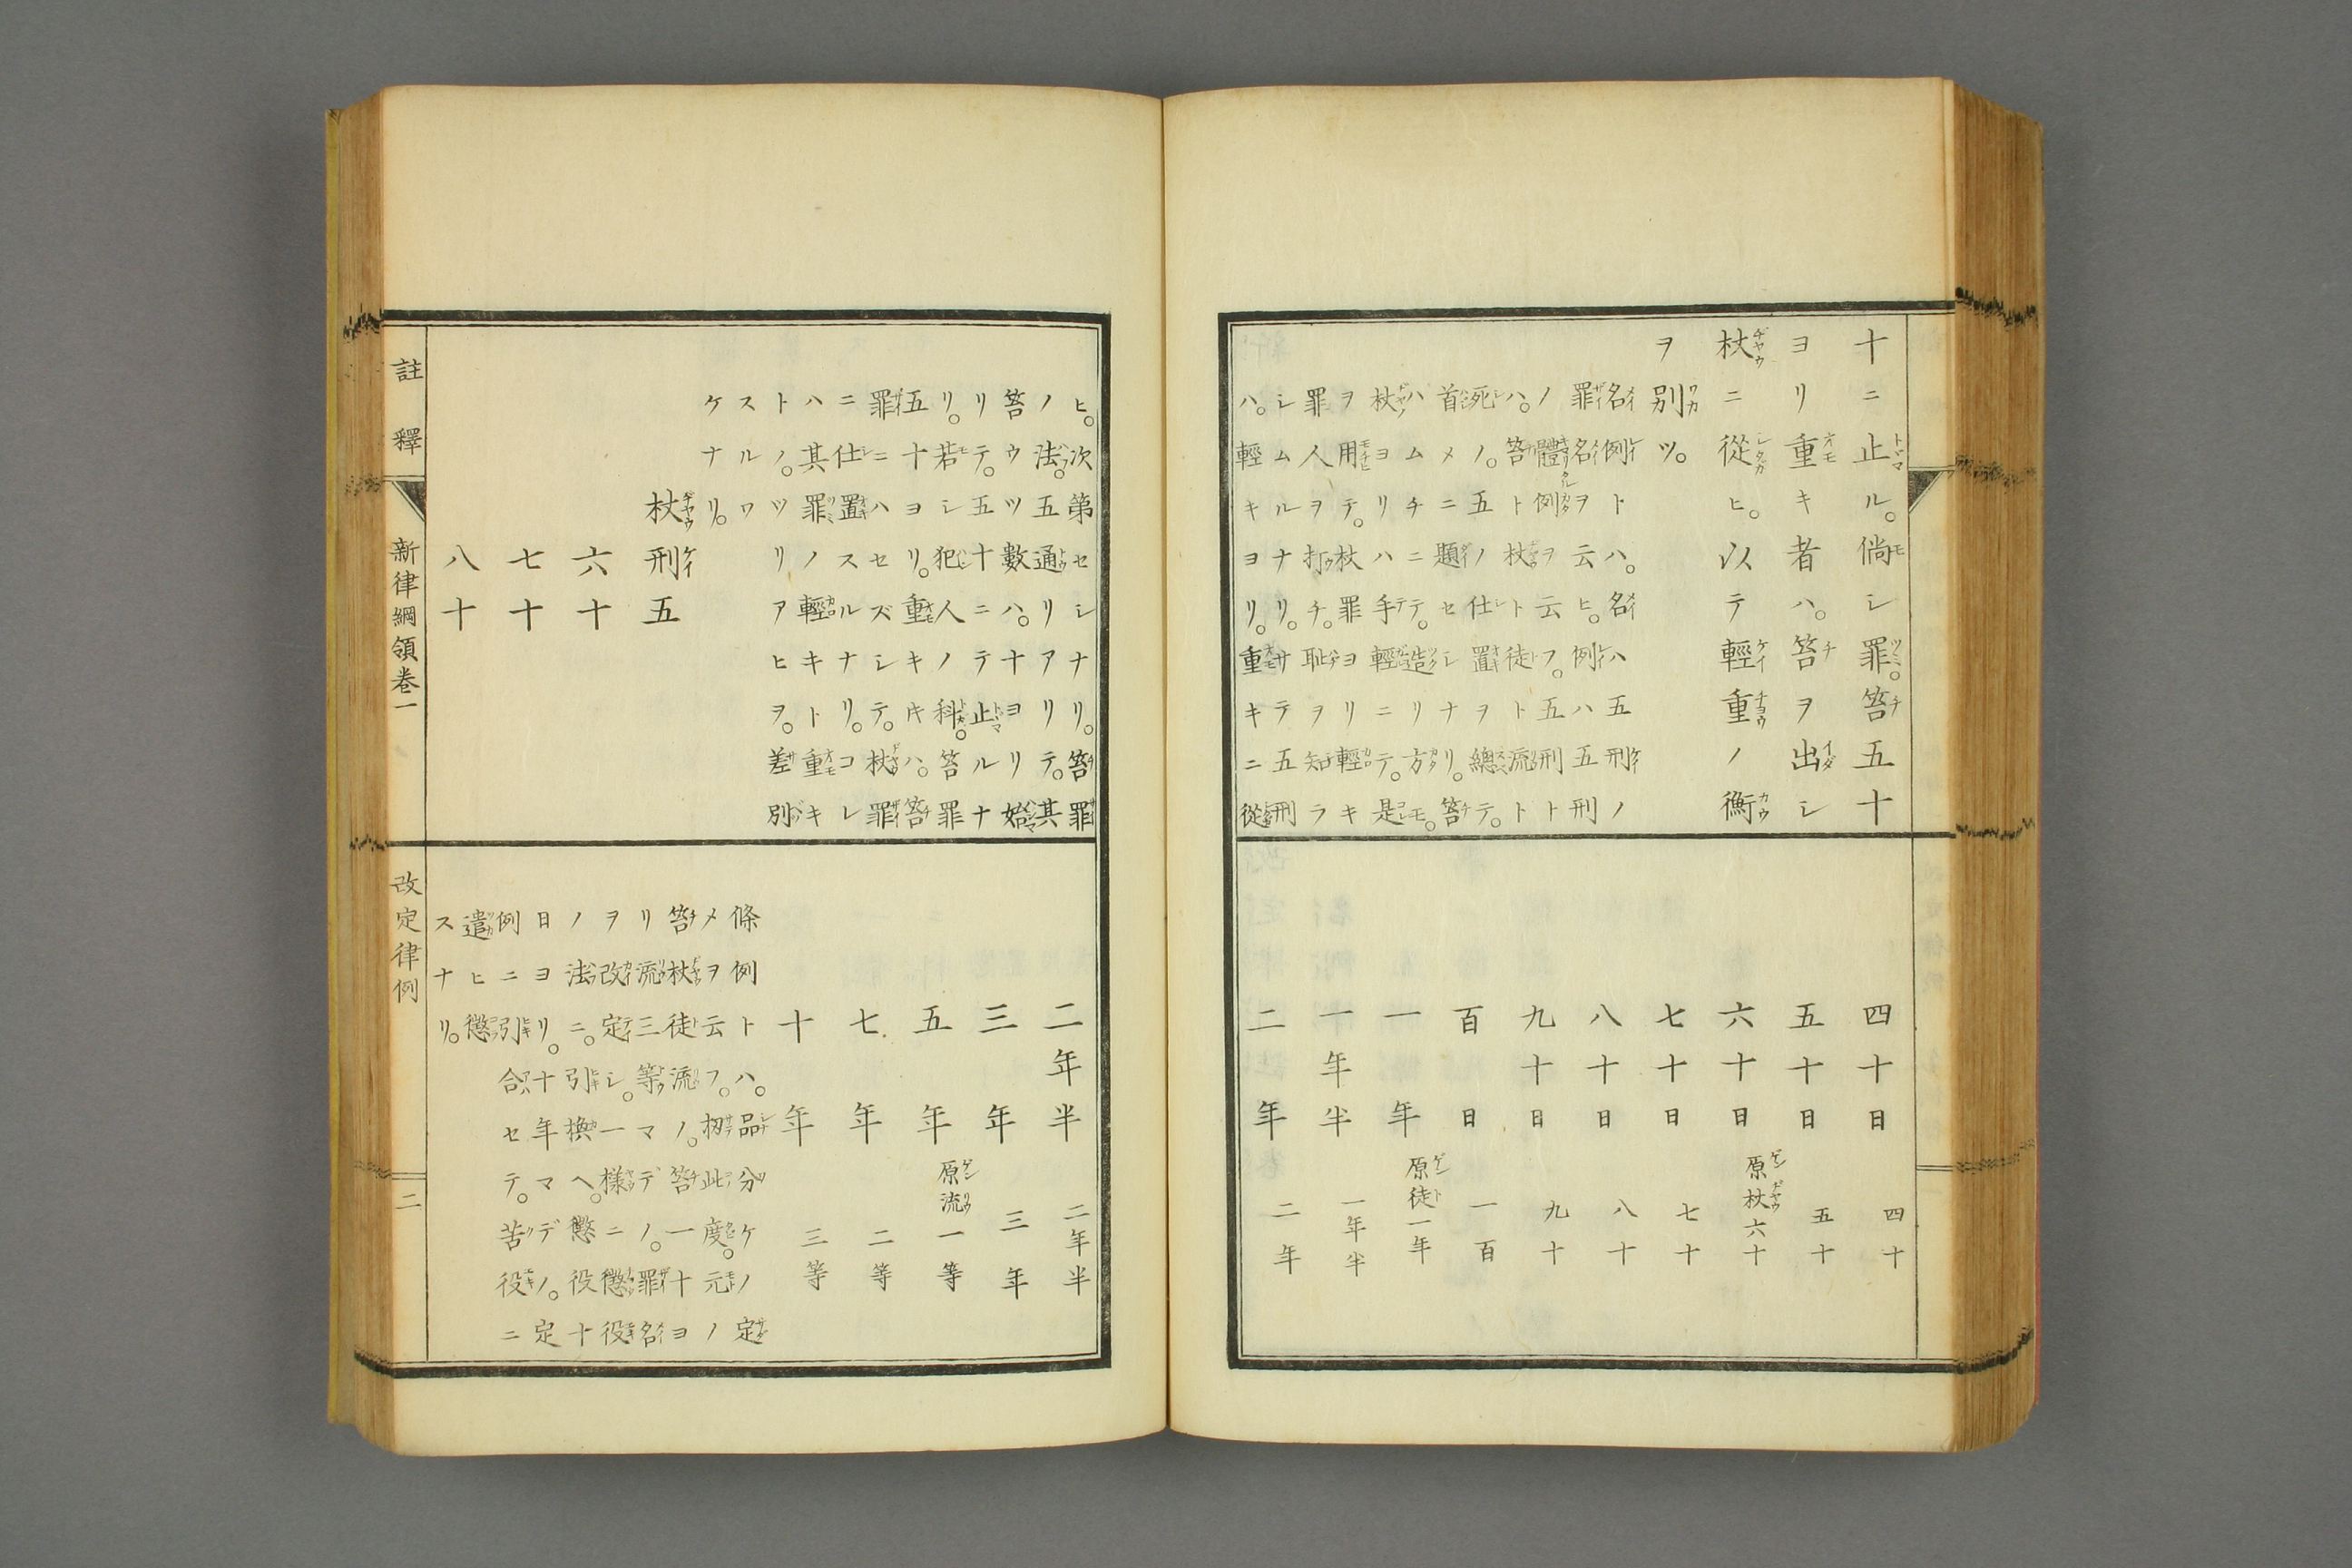 十ニ止ル。倘シ罪。笞五十
ヨリ重キ者ハ。笞ヲ出シ
杖ニ從ヒ。以テ輕重ノ衡
ヲ別ツ。
名例トハ。名ハ五刑ノ
罪名ヲ云ヒ。例ハ五刑
ノ體例ヲ云フ。五刑ト
ハ。笞ト杖ト徒ト流ト
死ノ。五ノ仕置ヲ總テ。
首メニ題セシナリ。笞
ハムチニテ。造リ方モ。
杖ヨリハ手輕ニテ。是
ヲ用テ。杖罪ヨリ輕キ
罪人ヲ打チ。恥ヲ知ラ
シムルナリ。サテ五刑
ハ。輕キヨリ。重キニ從
四十日 四十
五十日 五十
六十日 原杖六十
七十日 七十
八十日 八十
九十日 九十
百日 一百
一年 原徒一年
一年半 一年半
二年 二年
ヒ。次第セシナリ。笞罪
ノ法。五通リアリテ。其
笞ウツ數ハ。十ヨリ始
リテ。五十ニテ止ルナ
リ。若シ犯人ノ科。笞罪
五十ヨリ。重キキハ。笞
罪ニハセズシテ。杖罪
ニ仕置スルナリ。コレ
ハ其罪ノ輕キト重キ
トノ。ツリアヒヲ。差別
スルワ
ケナリ。
杖刑五
六十
七十
八十
二年半 二年半
三年 三年
五年 原流一等
七年 二等
十年 三等
條例トハ。品分ケノ定
メヲ云フ。扨此度。元ノ
笞杖徒流ノ。笞一十ヨ
リ流三等マデノ。罪名
ヲ改定シ。一樣ニ懲役
ノ法ニ。引換ヘ。懲役十
日ヨリ。十年マデノ。定
例ニ引合セテ。苦役ニ
遣ヒ懲
スナリ。
註釋 新律綱領卷一 改定律例 二